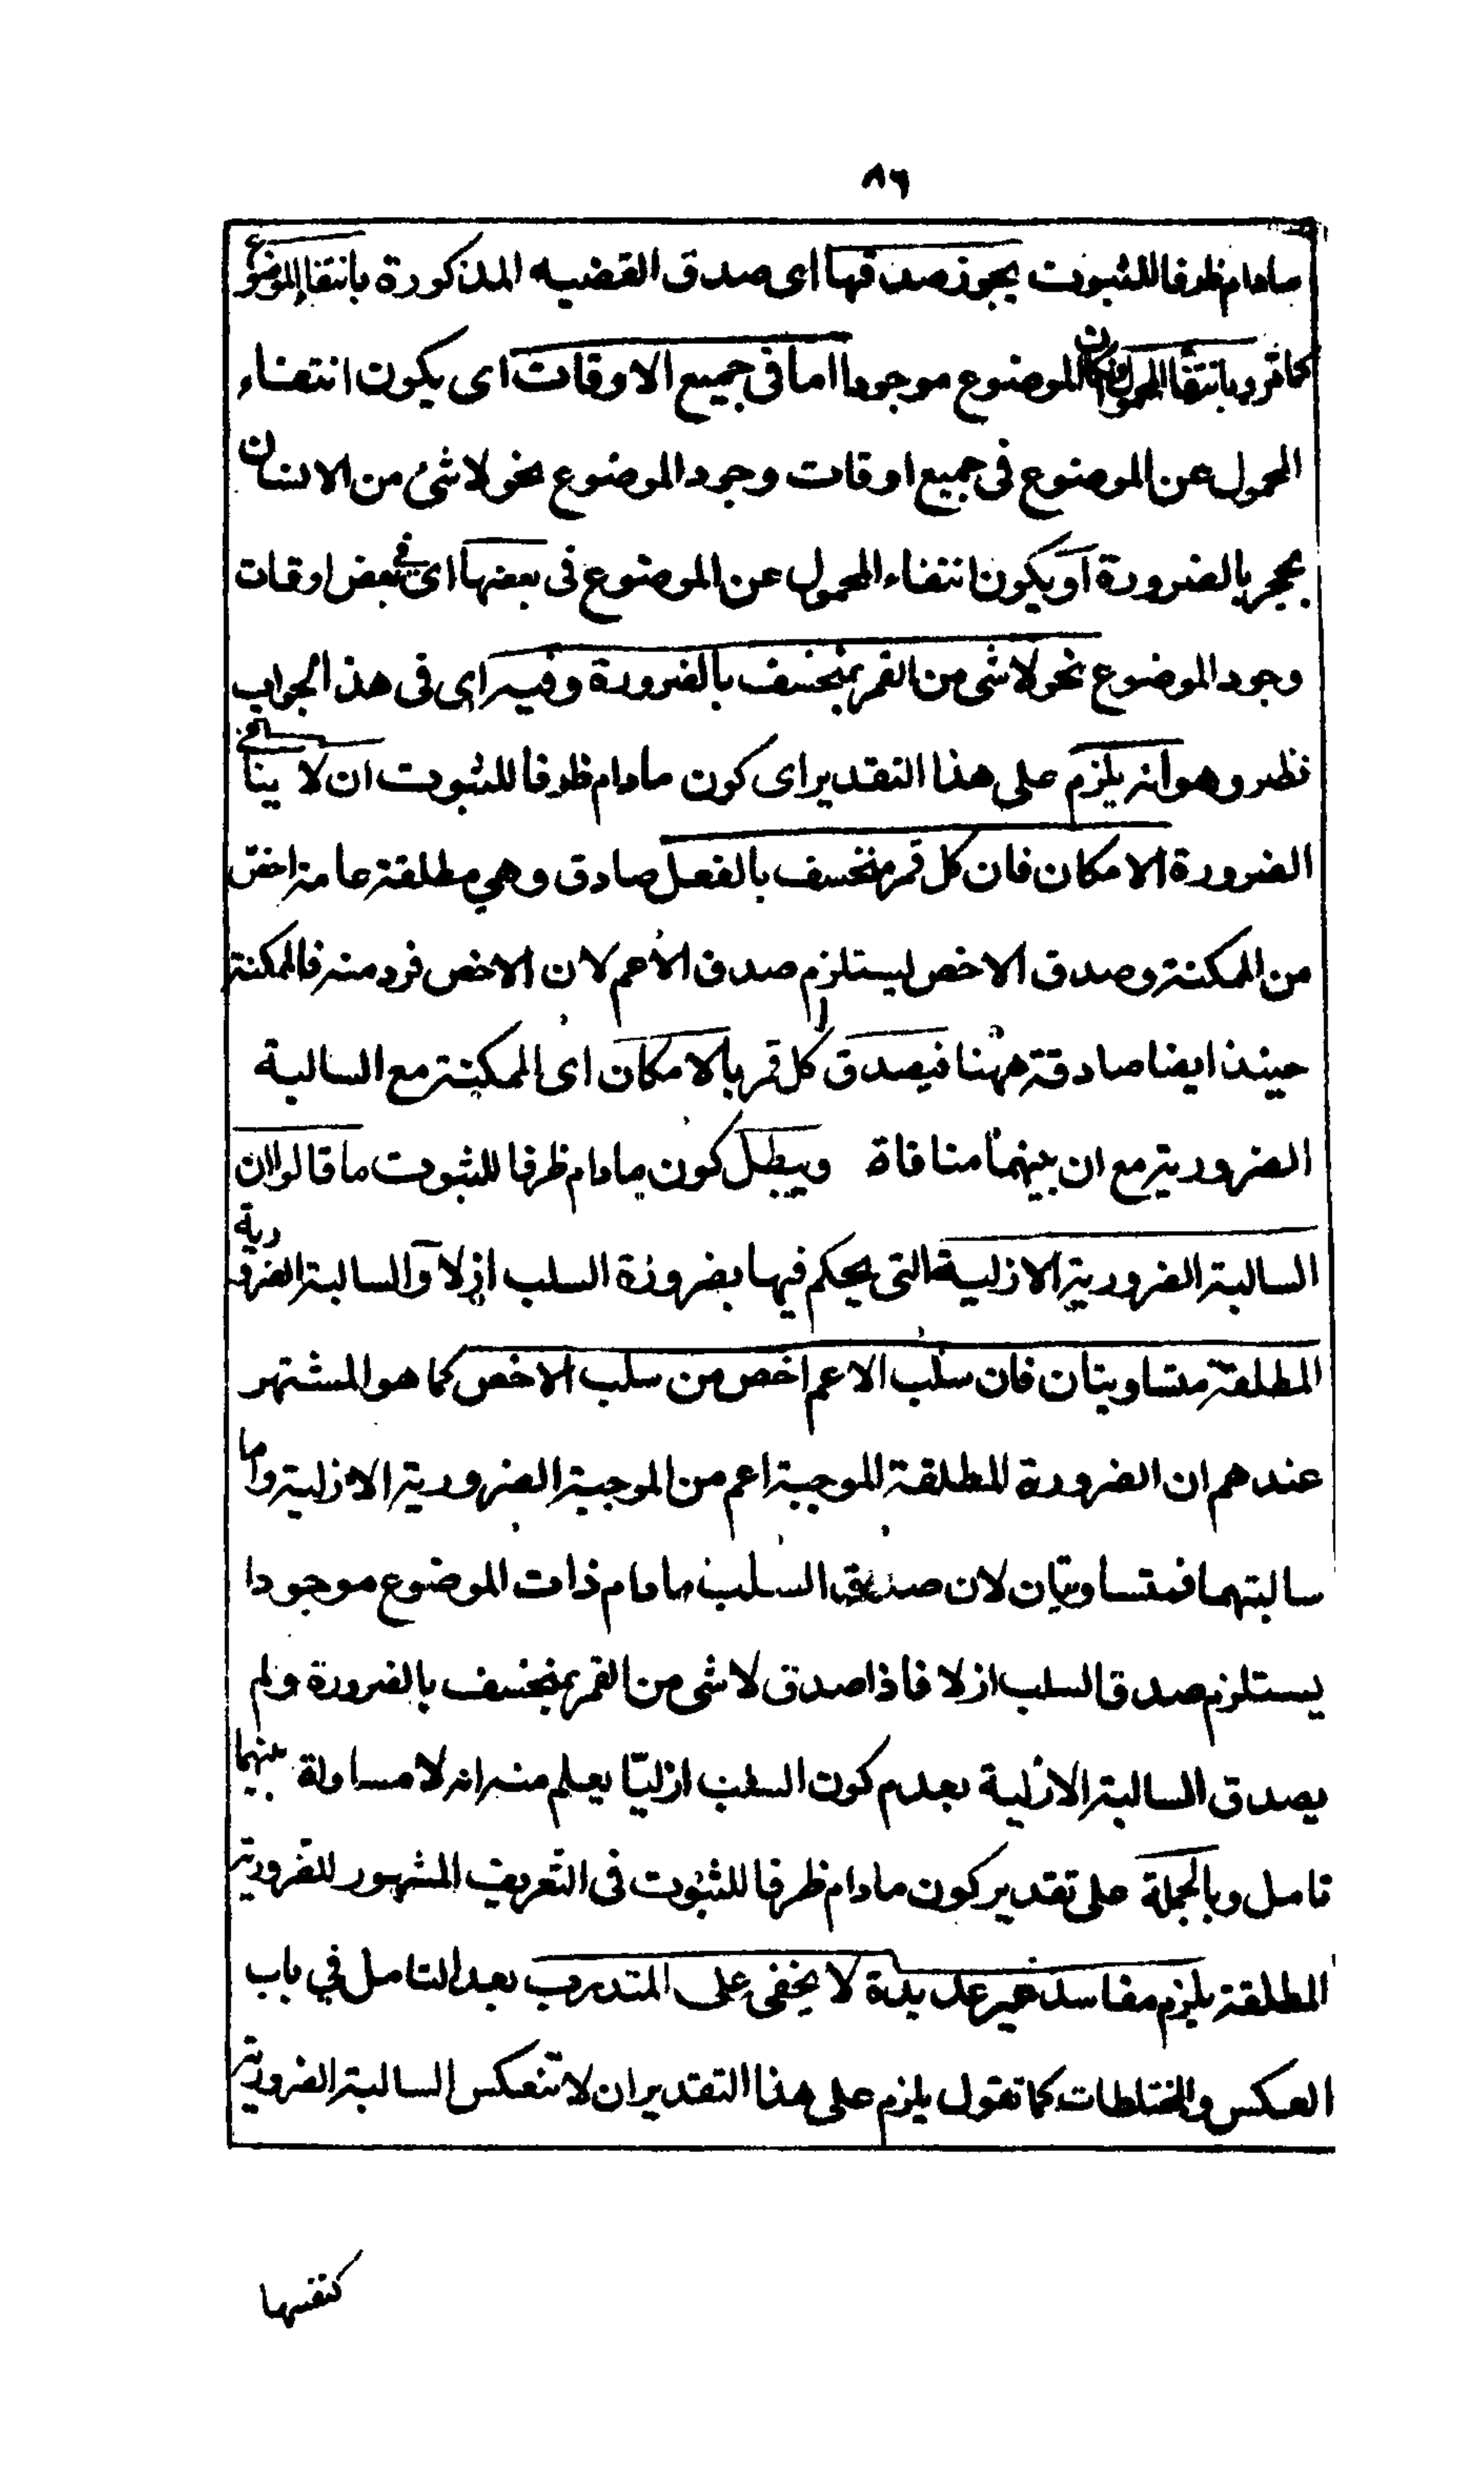 ٨٦
مادام ظرفا للثبوت يجوز صدقها اى صدق القضيه المذكورة بانتفاء الموضوع
كما قرر بانتفاء المحمول وان كان الموضوع موجودا اما فى جميع الاوقات اى يكون انتفاء
المحمول عن الموضوع فى جميع اوقات وجود الموضوع نحو لا شئ من الانسان
بحجر بالضرورة او يكون انتفاء المحمول عن الموضوع فى بعضها اى فى بعض اوقات
وجود الموضوع نحو لا شى من القمر بمنخسف بالضرورة وفيه اى فى هذا الجواب
نظر وهو انه يلزم على هذا التقدير اى كون مادام ظرفا للثبوت ان لا ينافى
الضرورة الامكان فان كل قمر منخسف بالفعل صادق وهي مطلقة عامة اخص
من الممكنة وصدق الاخص ليستلزم صدق الاعم لان الاخص فرد منه فالممكنة
حينئذ ايضا صادقة ههنا فيصدق كل قمر بالامكان اى الممكنة مع السالبة
الضرورية مع ان بينهما منافاة ويبطل كون مادام ظرفا للثبوت ما قالوا ان
السالبة الضرورية الازلية التى يحكم فيها بضرورة السلب ازلا والسالبة الضرورية
المطلقة متساويتان فان سلب الاعم اخص من سلب الاخص كما هو المشتهر
عندهم ان الضرورة المطلقة الموجبة اعم من الموجبة الضرورية الازلية واما
سالبتهما فمتساويتان لان صدق السلب مادام ذات الموضوع موجودا
يستلزم صدق السلب ازلا فاذا صدق لا شى من القمر بمنخسف بالضرورة ولم
يصدق السالبة الازلية بعدم كون السلب ازليّا يعلم منه انه لا مساواة بينهما
تامل وبالجملة على تقدير كون مادام ظرفا للثبوت فى التعريف المشهور للضرورية
المطلقة يلزم مفاسد غير عديدة لا يخفى على المتدرب بعد التامل في باب
العكس والمختلطات كما تقول يلزم على هذا التقدير ان لا تنعكس السالبة الضرورية
كنفسها